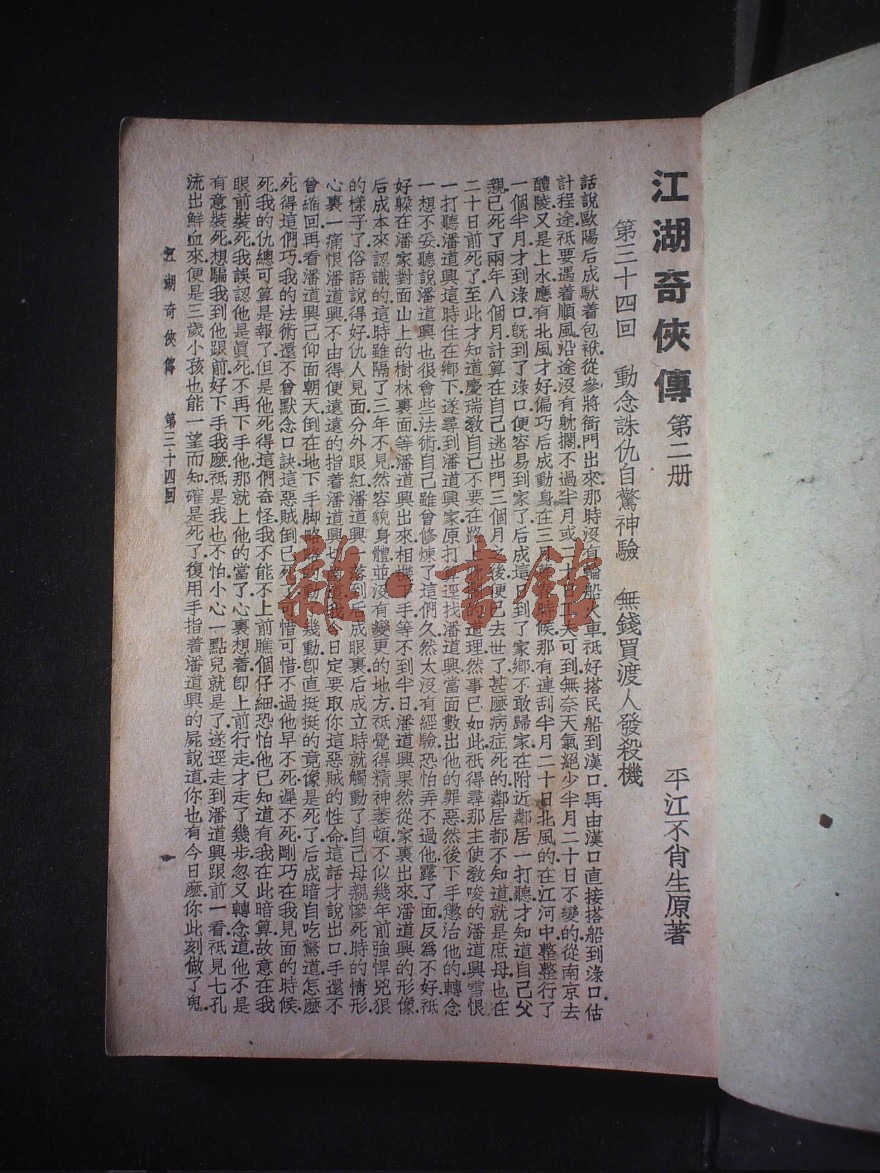 江湖奇俠傳 第二册
平江不肖生原著
第三十四回 動念誅仇自驚神驗 無錢買渡人發殺機
話說歐陽后成馱着包袱從參將衙門出來那時沒有輪船火車祇好搭民船到漢口再由漢口直接搭船到淥口估
計程途祇要遇着順風沿途沒有躭擱不過半月或二十日工夫可到無奈天氣絕少半月二十日不變的從南京去
醴陵又是上水應有北風才好偏巧后成動身在三月 時候那有連刮半月二十日北風的在江河中整整行了
一個半月才到淥口旣到了淥口便容易到家了后成這 到了家鄉不敢歸家在附近鄰居一打聽才知道自己父
親已死了兩年八個月計算在自己逃出門三個月之後便已去世了甚麽病症死的鄰居都不知道就是庶母也在
二十日前死了至此才知道慶瑞教自己不要在路上 的道理然事已如此祇得尋那主使教唆的潘道興雪恨
一打聽潘道興這時住在鄉下遂尋到潘道興家原打算逕找潘道興當面數出他的罪惡然後下手懲治他的轉念
一想不妥聽說潘道興也很會些法術自己雖曾修煉了這們久然太沒有經驗恐怕弄不過他露了面反爲不好祇
好躲在潘家對面山上的樹林裏面等潘道興出來相機下手等不到半日潘道興果然從家裏出來潘道興的形像
后成本來認識的這時雖隔了三年不見然容貌身體並沒有變更的地方祇覺得精神萎頓不似幾年前強悍兇狠
的樣子了俗語說得好仇人見面分外眼紅潘道興 落到后成眼裏后成立時就觸動了自己母親慘死時的情形
心裏一痛恨潘道興不由得便遠遠的指着潘道興 道我今日定要取你這惡賊的性命這話才說出口手還不
曾縮回再看潘道興已仰面朝天倒在地下手脚略 動幾動卽直挺挺的竟像是死了后成暗自吃驚道怎麽
死得這們巧我的法術還不曾默念口訣這惡賊倒已死了可惜可惜不過他早不死遲不死剛巧在我見面的時候
死我的仇總可算是報了但是他死得這們奇怪我不能不上前瞧個仔細恐怕他已知道有我在此暗算故意在我
眼前裝死我誤認他是眞死不再下手他那就上他的當了心裏想着卽上前行走才走了幾步忽又轉念道他不是
有意裝死想騙我到他跟前好下手我麽祇是我也不怕小心一點兒就是了遂逕走到潘道興跟前一看祇見七孔
流出鮮血來便是三歲小孩也能一望而知確是死了復用手指着潘道興的屍說道你也有今日麽你此刻做了鬼
江湖奇俠傳 第三十四回
雜·書館